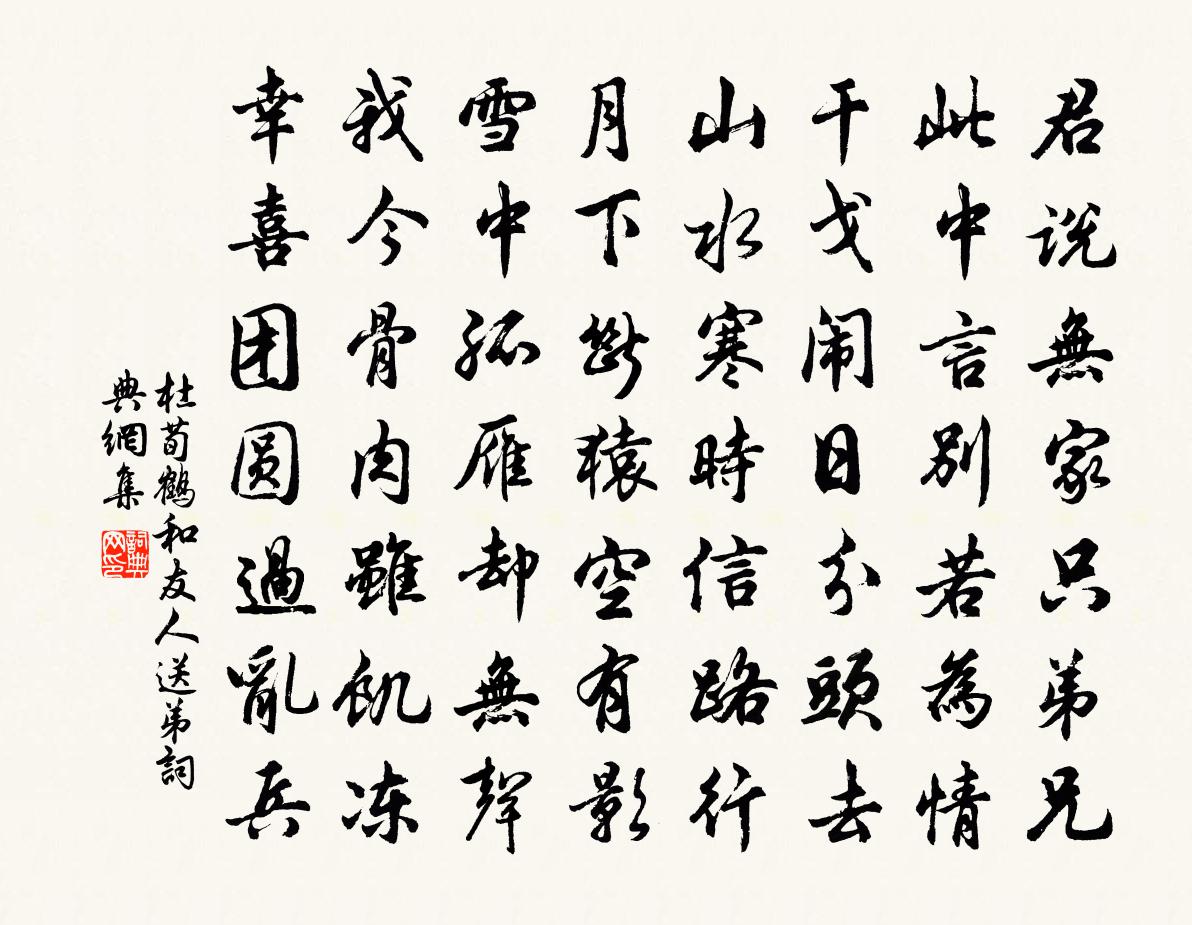 君说無家只弟兄
此中言别若為情
干戈闹日分頭去
山水寒時信路行
月下斷猿空有影
雪中孤雁却無聲
我今骨肉雖飢冻
幸喜团圆過亂兵
杜荀鶴和友人送弟詞
典網集
詞典
网印